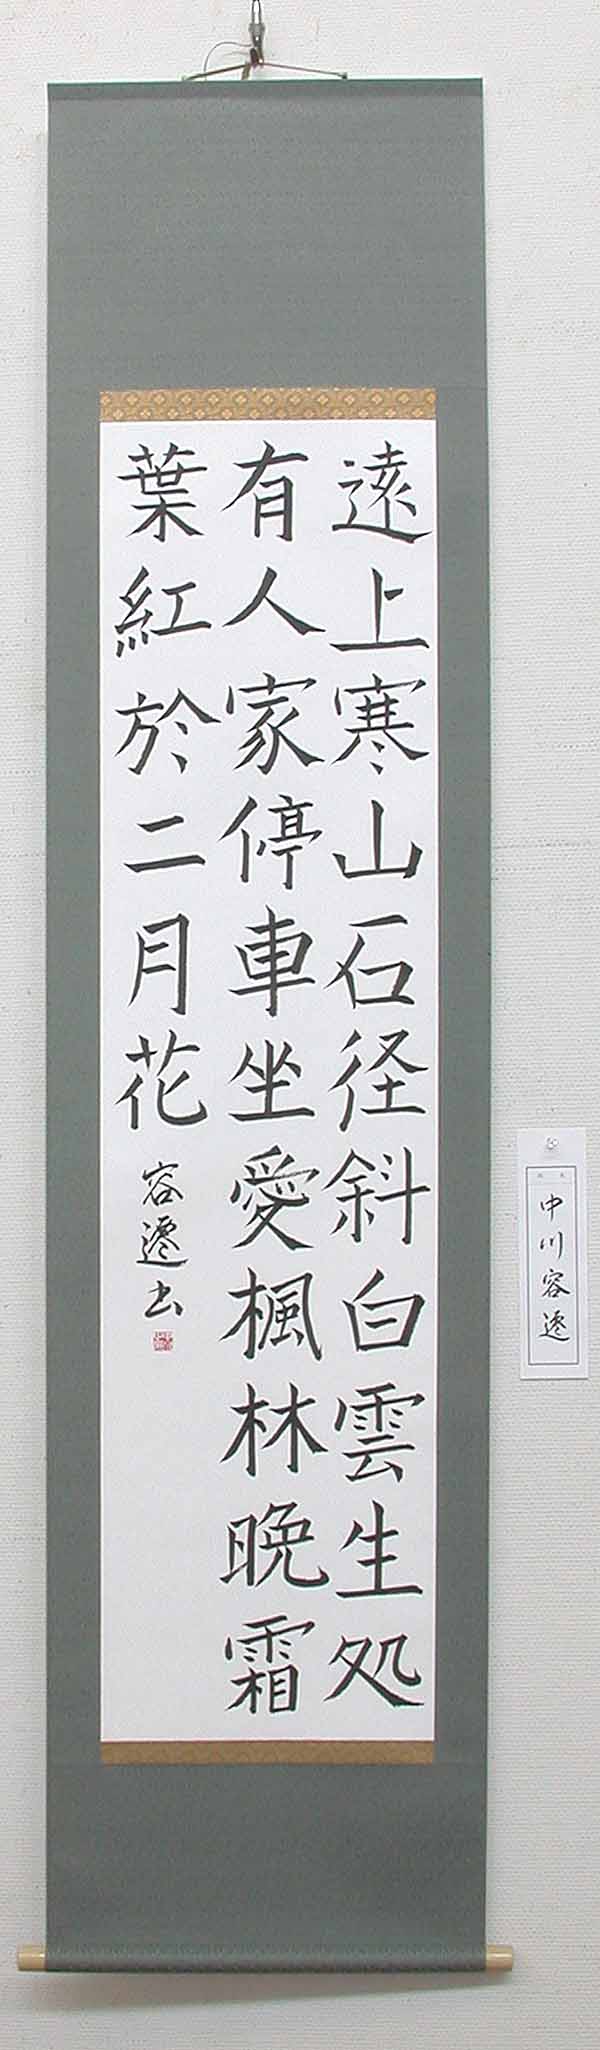 遠上寒山石径斜白雲生処
有人家停車坐愛楓林晩霜
葉紅於二月花
容遷书
中川容遷